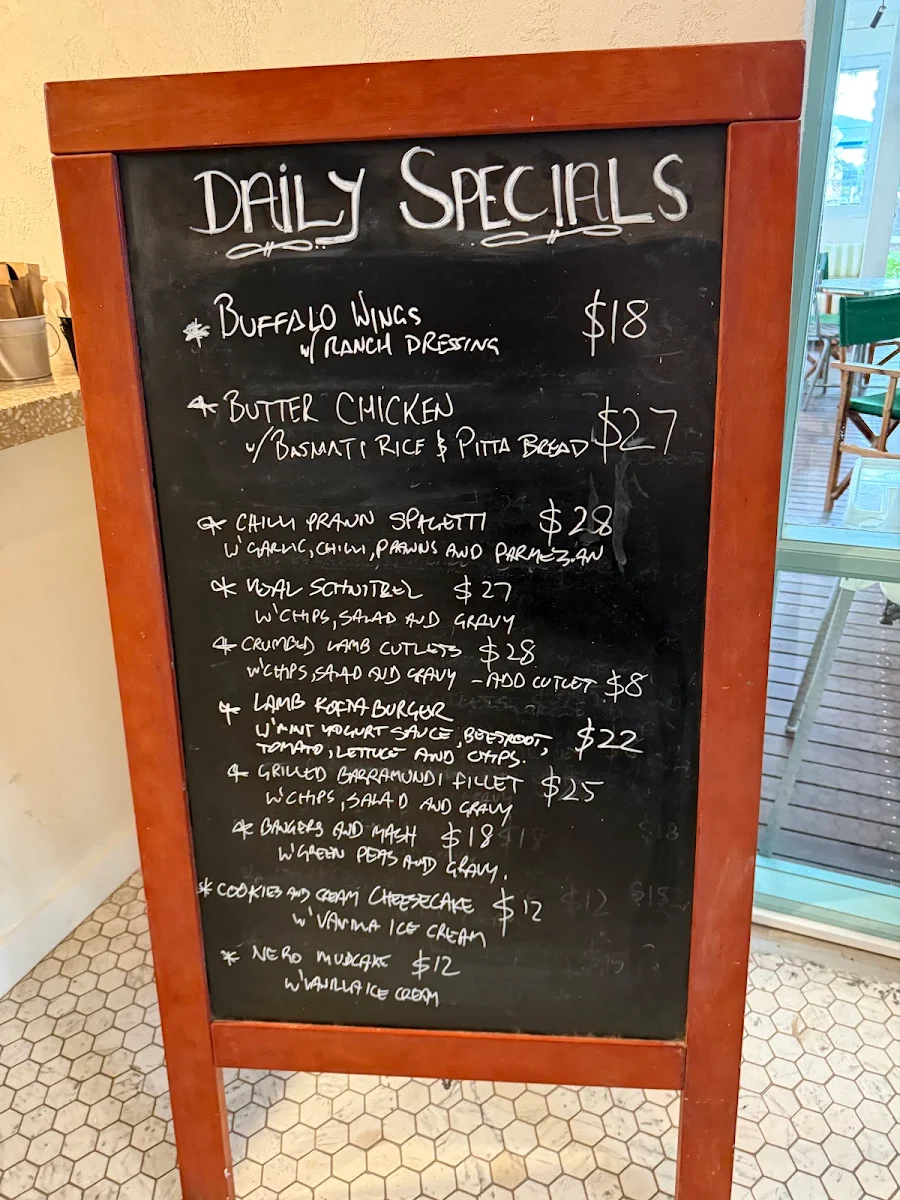 DAiLY SPECIALS
* BUFFALO WINGS $18
w/ RANCH DRESSING
* BUTTER CHICKEN
w/ BASMATI RICE & PITTA BREAD $27
* CHILLI PRAWN SPAGETTI $28
W' GARLIC, CHILLI, PRAWNS AND PARMEZAN
* VEAL SCHNITZEL $27
W' CHIPS, SALAD AND GRAVY
* CRUMBED LAMB CUTLETS $28
W' CHIPS, SALAD AND GRAVY - ADD CUTLET $8
* LAMB KOFTA BURGER
W' MINT YOGURT SAUCE, BEETROOT, $22
TOMATO, LETTUCE AND CHIPS.
* GRILLED BARRAMUNDI FILLET $25
W' CHIPS, SALAD AND GRAVY
* BANGERS AND MASH $18
W' GREEN PEAS AND GRAVY.
* COOKIES AND CREAM CHEESECAKE $12
W' VANILLA ICE CREAM
* NERO MUDCAKE $12
W' VANILLA ICE CREAM